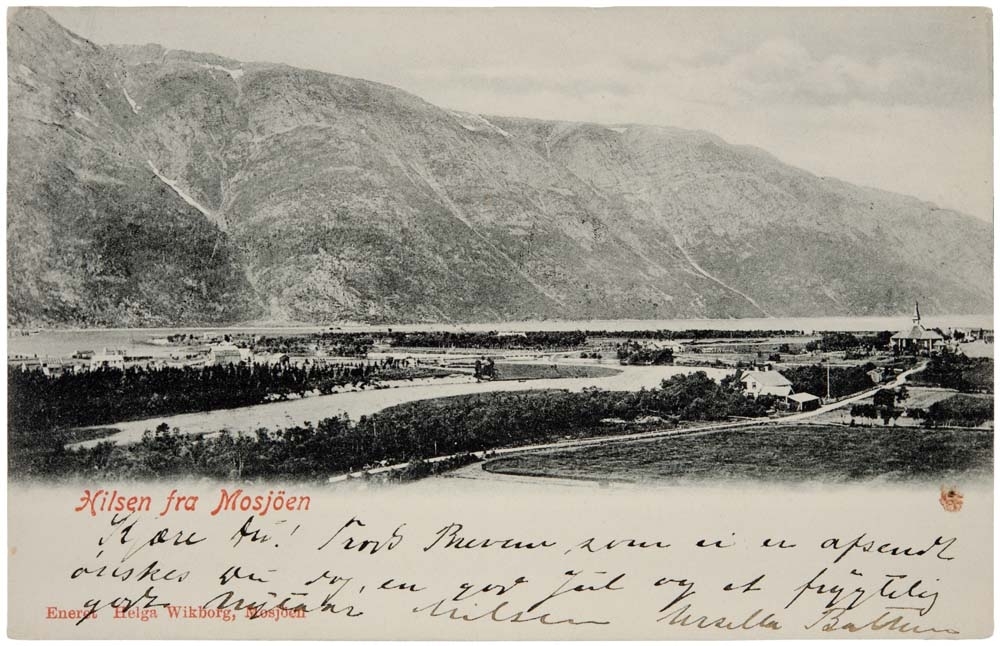 Hilsen fra Mosjöen
Kjære Du! Trods Brevene, som ei er afsendt
ønskes Du dog, en god Jul og et frygtelig
godt Nytaar Hilsen Ursilla
Eneret Helga Wikborg, Mosjöen